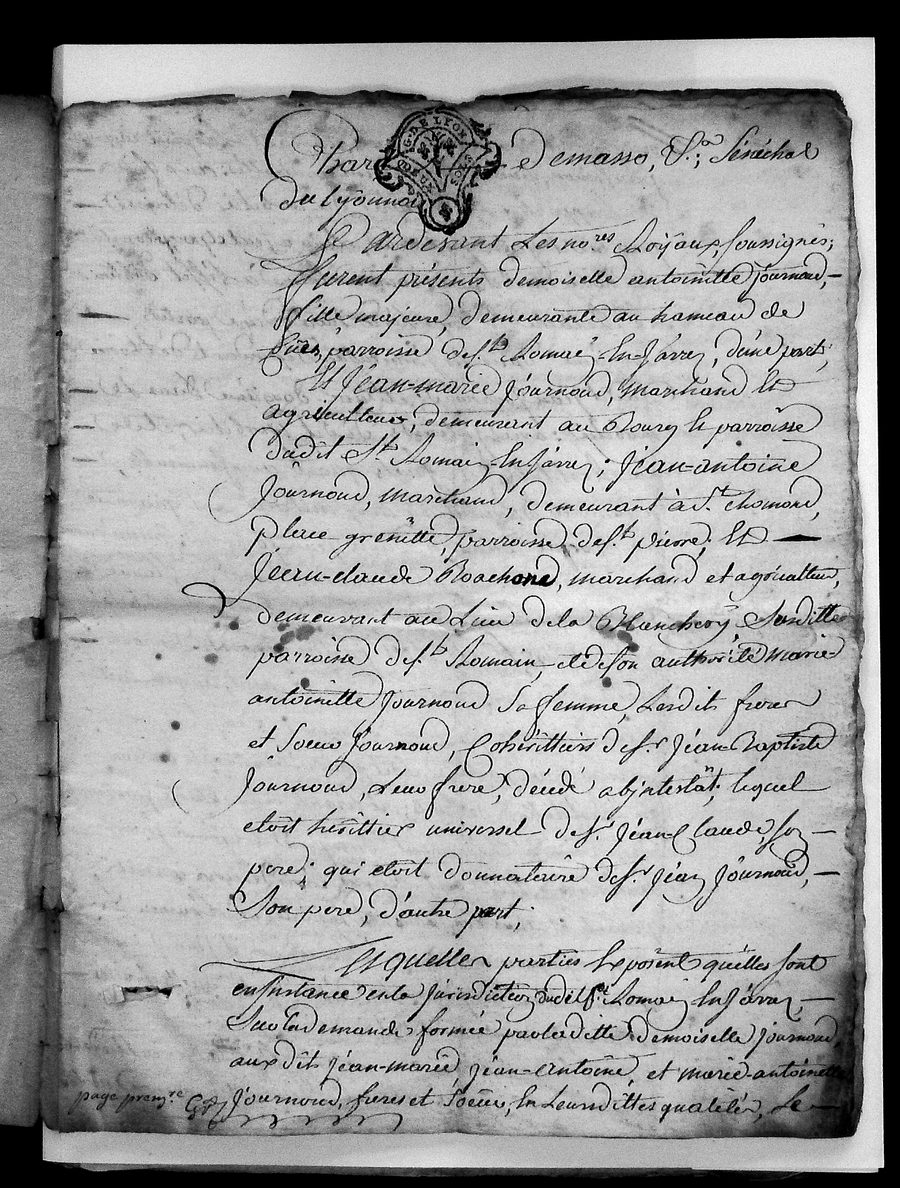 G. DE LYON
Demasso, Sénéchal
du Lyonnois
Pardevant Les no.res Royaux, soussignés;
furent présents demoiselle antoinette Journoud,
fille majeure, demeurante au hameau de
parroisse de St. Romain-En-Jarrez, d'une part;
Et Jean-marie Journoud, marchand et
agriculteur, demeurant au parroisse
dudit St. Romain-En-Jarrez; Jean-antoine
Journoud, marchand, demeurant à St. chomond,
place grenétte, parroisse de St. pierre; Et
Jean-claude Roachond, marchand et agriculteur,
demeurant au Lieu de la Blancherÿ, Susditte
parroisse de St. Romain, et de son authorité marie-
antoinette Journoud Sa femme, Lesdits freres
et Soeur Journoud, Cohérittiers de Sr. Jean-Baptiste
Journoud, Leur frere, décédé abjntestat; lequel
étoit hérittier universel de Sr. Jean-Claude, son
pere; qui étoit donnataire de Sr. Jean Journoud,
Son pere, d'autre part;
Lesquelles parties Exposent qu'elles sont
en Jnstance en la Jurisdiction dudit St. Romain En Jarrez,
Sur la demande formée par laditte demoiselle Journoud
aux dits Jean-marie, Jean-Antoine, et marie-antoinette
Journoud, freres et Soeur, En Leursdittes qualités, Le
page prem.re